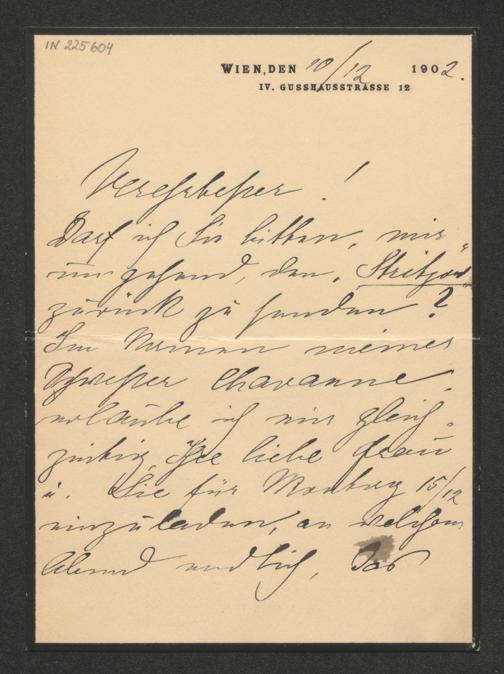 IN 225604
WIEN, DEN 10/12 1902.
IV. GUSSHAUSSTRASSE 12
Verehrtester!
Darf ich Sie bitten, mir
umgehend, den „
zurück zu senden?
Im Namen meiner
Schwester Chavanne,
erlaube ich mir gleich-
zeitig, Ihre liebe Frau
u. Sie für Montag 15/12
einzuladen, an welchem
Abend endlich, das